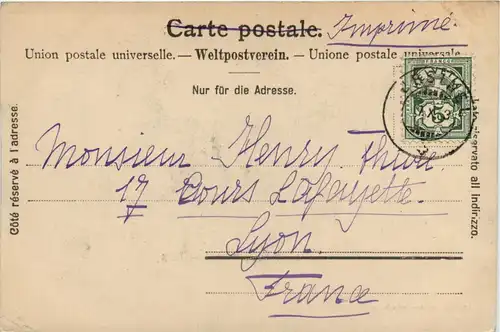 Carte postale. Imprimé.
Union postale universelle. — Weltpostverein. — Unione postale universale
Nur für die Adresse.
Côté réservé à l'adresse.
Monsieur Henry
17 Cours Lafayette.
Lyon.
France
riservato all' Indirizzo.
5